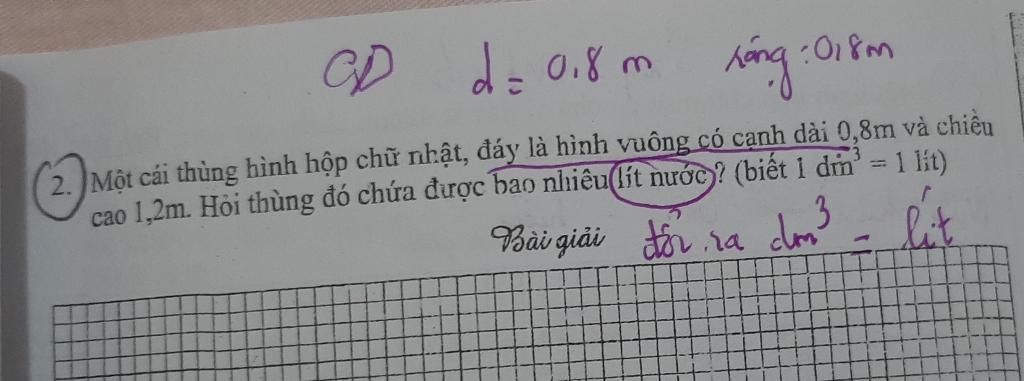 d = 0,8 m rộng : 0,8m
2. Một cái thùng hình hộp chữ nhật, đáy là hình vuông có cạnh dài 0,8m và chiều
cao 1,2m. Hỏi thùng đó chứa được bao nhiêu lít nước? (biết 1 dm³ = 1 lít)
Bài giải đổi ra dm³ = lít